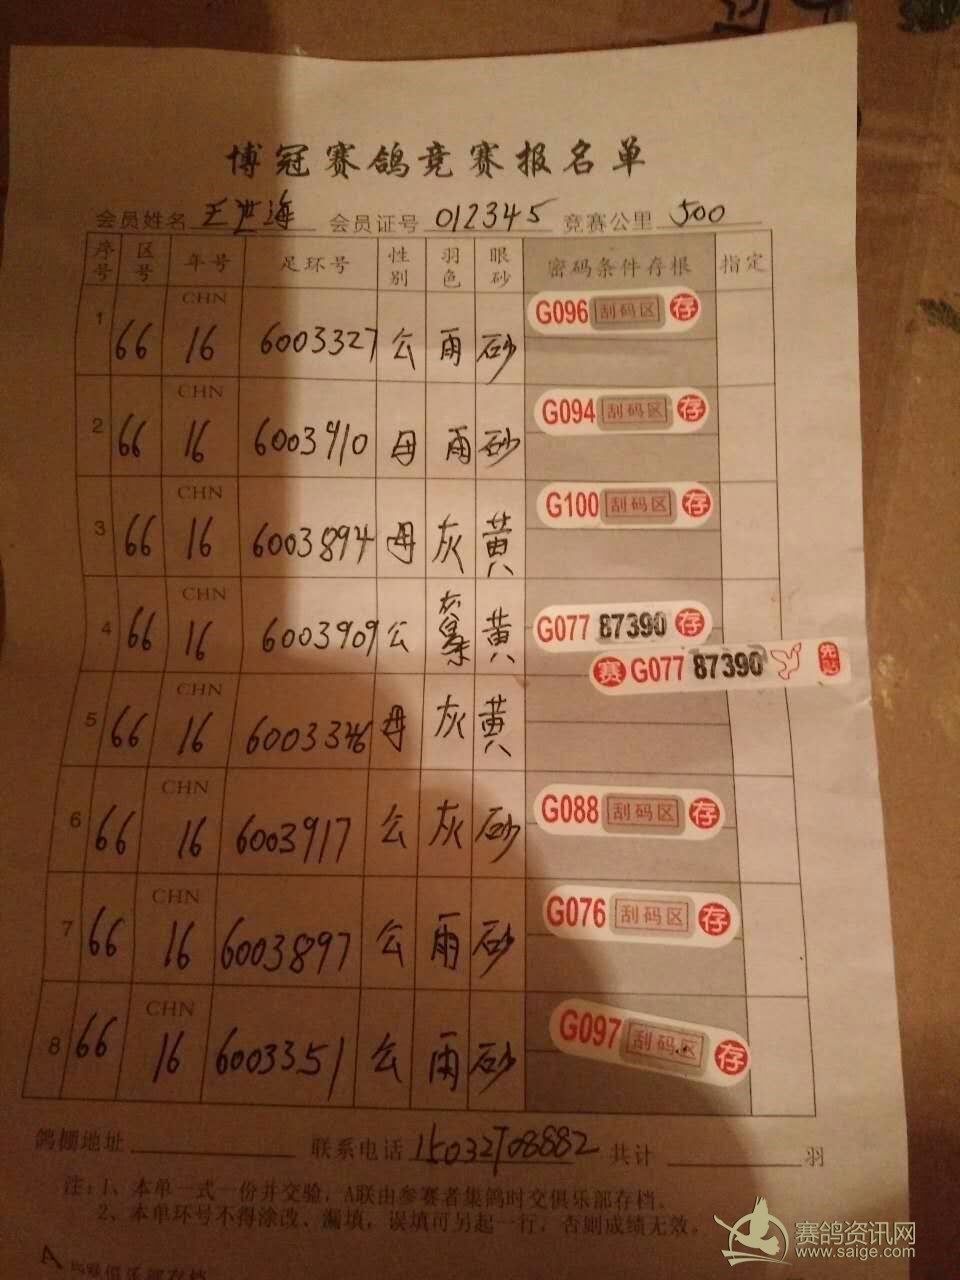 博冠赛鸽竞赛报名单
会员姓名 王世海 会员证号 012345 竞赛公里 500
序号 区号 年号 足环号 性别 羽色 眼砂 密码条件存根 指定
1 66 CHN 16 6003327 公 雨 砂 G096 刮码区 存
2 66 CHN 16 6003910 母 雨 砂 G094 刮码区 存
3 66 CHN 16 6003894 母 灰 黄 G100 刮码区 存
4 66 CHN 16 6003909 公 黄 G077 87390 存
赛 G077 87390
5 66 CHN 16 6003346 母 灰 黄
6 66 CHN 16 6003917 公 灰 砂 G088 刮码区 存
7 66 CHN 16 6003897 公 雨 砂 G076 刮码区 存
8 66 CHN 16 6003351 公 雨 砂 G097 刮码区 存
鸽棚地址 联系电话 15032708882 共计 羽
注:1、本单一式一份并交验,A联由参赛者集鸽时交俱乐部存档。
2、本单环号不得涂改、漏填,误填可另起一行,否则成绩无效。
A
赛鸽资讯网
www.saige.com